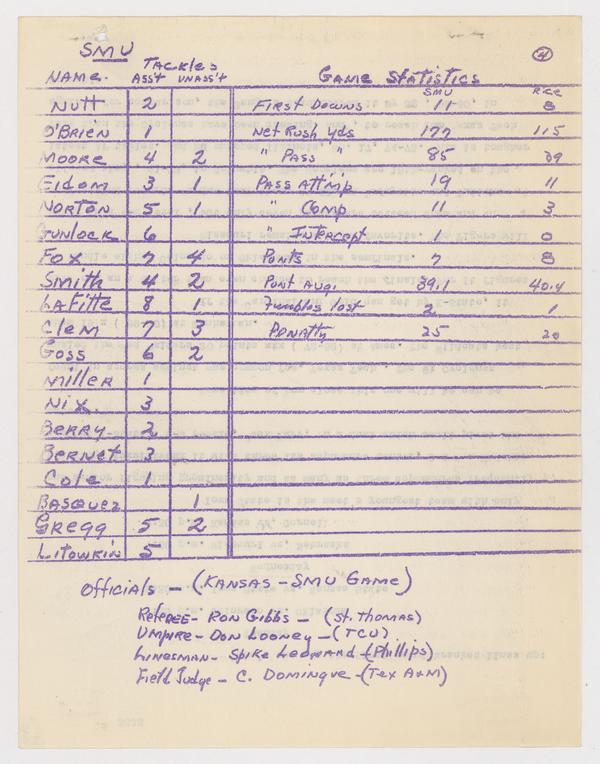 SMU
4
Tackles
NAME. ASS'T UNASS'T GAME STATISTICS
SMU RCE
NUTT 2 First Downs 11 8
O'BRIEN 1 Net Rush yds 177 115
MOORE 4 2 " PASS " 85 39
EIDOM 3 1 PASS Attmp 19 11
NORTON 5 1 " Comp 11 3
GUNLOCK 6 " Intercept 1 0
FOX 7 4 Punts 7 8
Smith 4 2 Punt Avg. 39.1 40.4
LAFitte 8 1 Fumbles lost 2 1
Clem 7 3 Penalty 25 20
Goss 6 2
Miller 1
Nix. 3
BERRY 2
BERNET 3
Cole 1
BASQUEZ 1
GREGG 5 2
LITOWKIN 5
Officials - (KANSAS - SMU GAME)
Referee - RON GIBBS - (St. Thomas)
Umpire - DON LOONEY - (TCU)
Linesman - Spike Leonard - (Phillips)
Field Judge - C. Domingue - (Tex A+M)